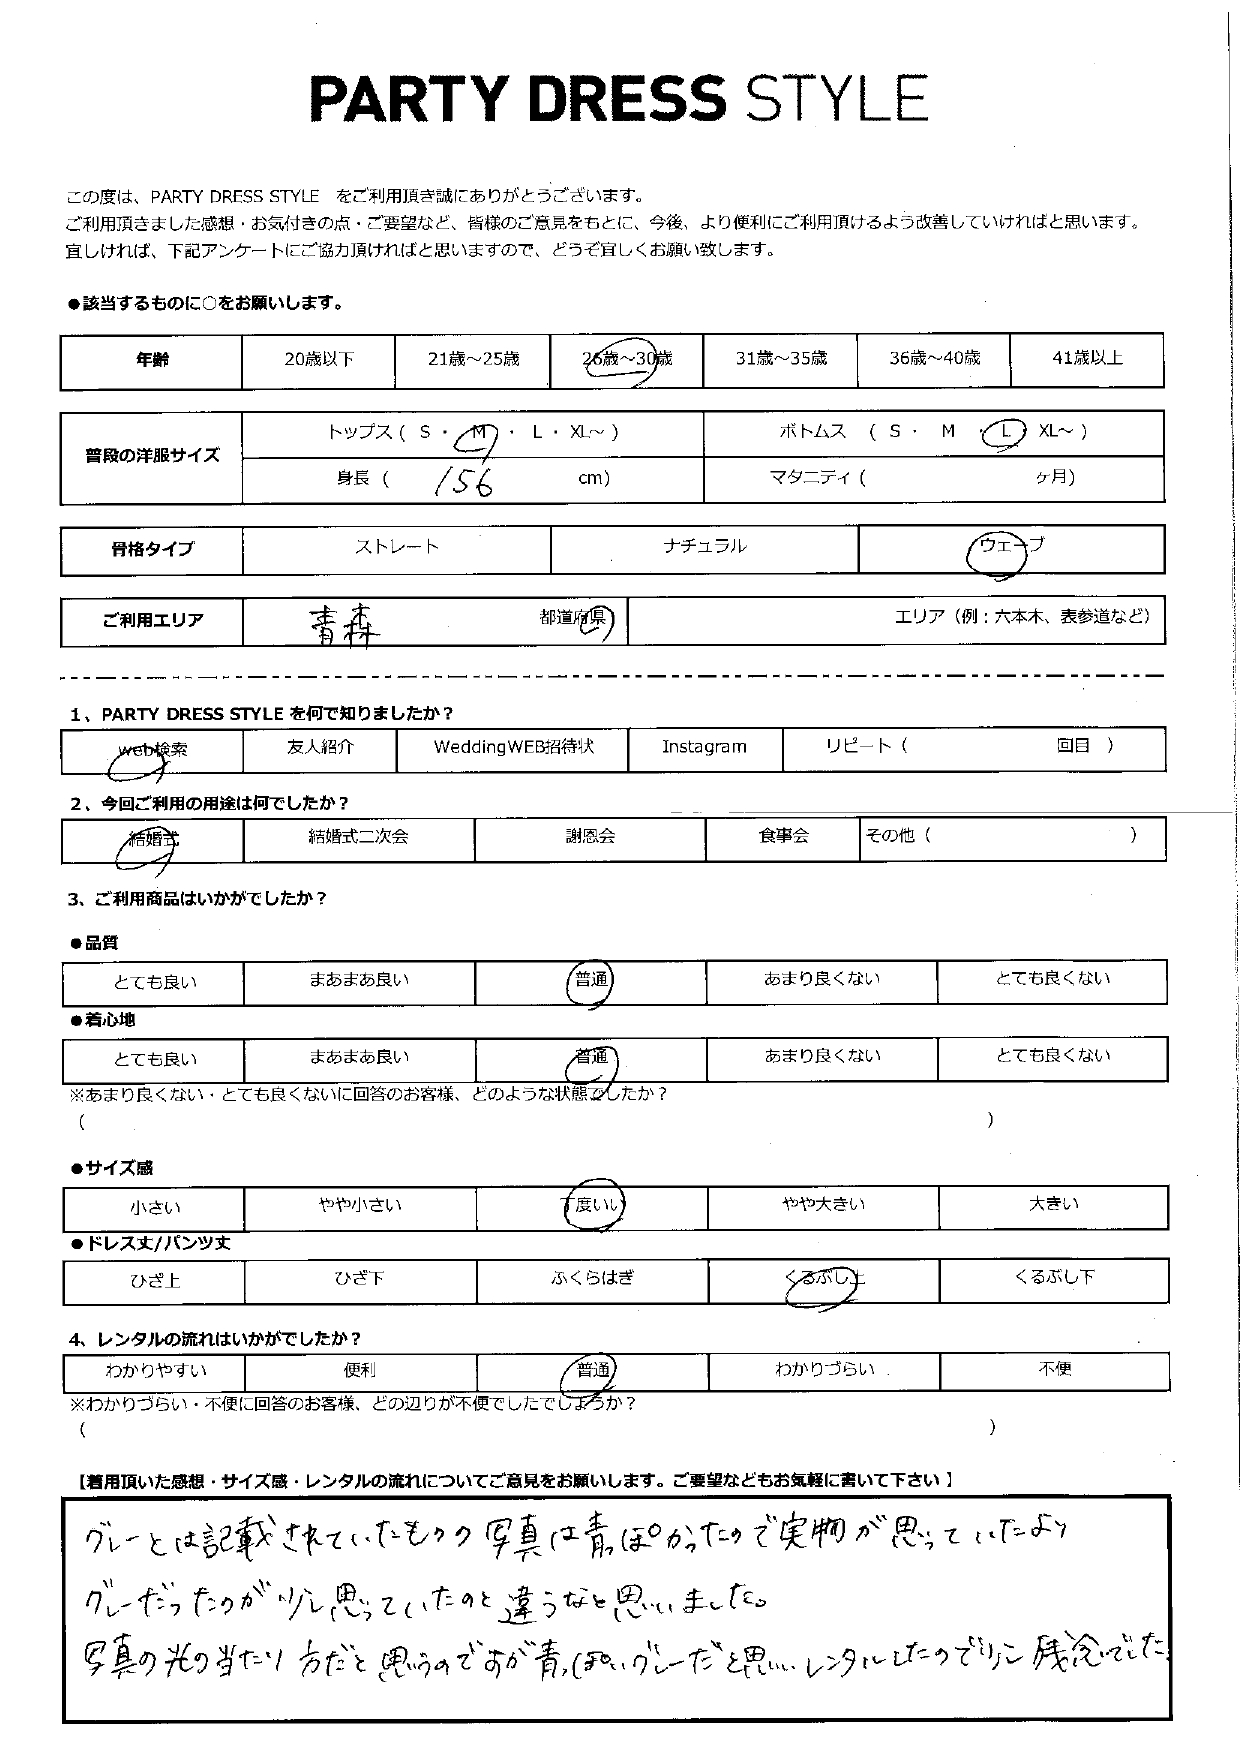 PARTY DRESS STYLE
この度は、PARTY DRESS STYLE をご利用頂き誠にありがとうございます。
ご利用頂きました感想・お気付きの点・ご要望など、皆様のご意見をもとに、今後、より便利にご利用頂けるよう改善していければと思います。
宜しければ、下記アンケートにご協力頂ければと思いますので、どうぞ宜しくお願い致します。
●該当するものに○をお願いします。
年齢 20歳以下 21歳～25歳 26歳～30歳 31歳～35歳 36歳～40歳 41歳以上
普段の洋服サイズ トップス ( S ・ M ・ L ・ XL～ ) ボトムス ( S ・ M ・ L XL～ )
身長 ( 156 cm) マタニティ ( ヶ月)
骨格タイプ ストレート ナチュラル ウェーブ
ご利用エリア 青森 都道府県 エリア（例：六本木、表参道など）
1、PARTY DRESS STYLE を何で知りましたか？
web検索 友人紹介 WeddingWEB招待状 Instagram リピート ( 回目 )
2、今回ご利用の用途は何でしたか？
結婚式 結婚式二次会 謝恩会 食事会 その他 ( )
3、ご利用商品はいかがでしたか？
●品質
とても良い まあまあ良い 普通 あまり良くない とても良くない
●着心地
とても良い まあまあ良い 普通 あまり良くない とても良くない
※あまり良くない・とても良くないに回答のお客様、どのような状態でしたか？
( )
●サイズ感
小さい やや小さい 丁度いい やや大きい 大きい
●ドレス丈/パンツ丈
ひざ上 ひざ下 ふくらはぎ くるぶし上 くるぶし下
4、レンタルの流れはいかがでしたか？
わかりやすい 便利 普通 わかりづらい 不便
※わかりづらい・不便に回答のお客様、どの辺りが不便でしたでしょうか？
( )
【着用頂いた感想・サイズ感・レンタルの流れについてご意見をお願いします。ご要望などもお気軽に書いて下さい】
グレーとは記載されていたものの写真は青っぽかったので実物が思っていたより
グレーだったのが少し思っていたのと違うなと思いました。
写真の光の当たり方だと思うのですが青っぽいグレーだと思いレンタルしたので少し残念でした。